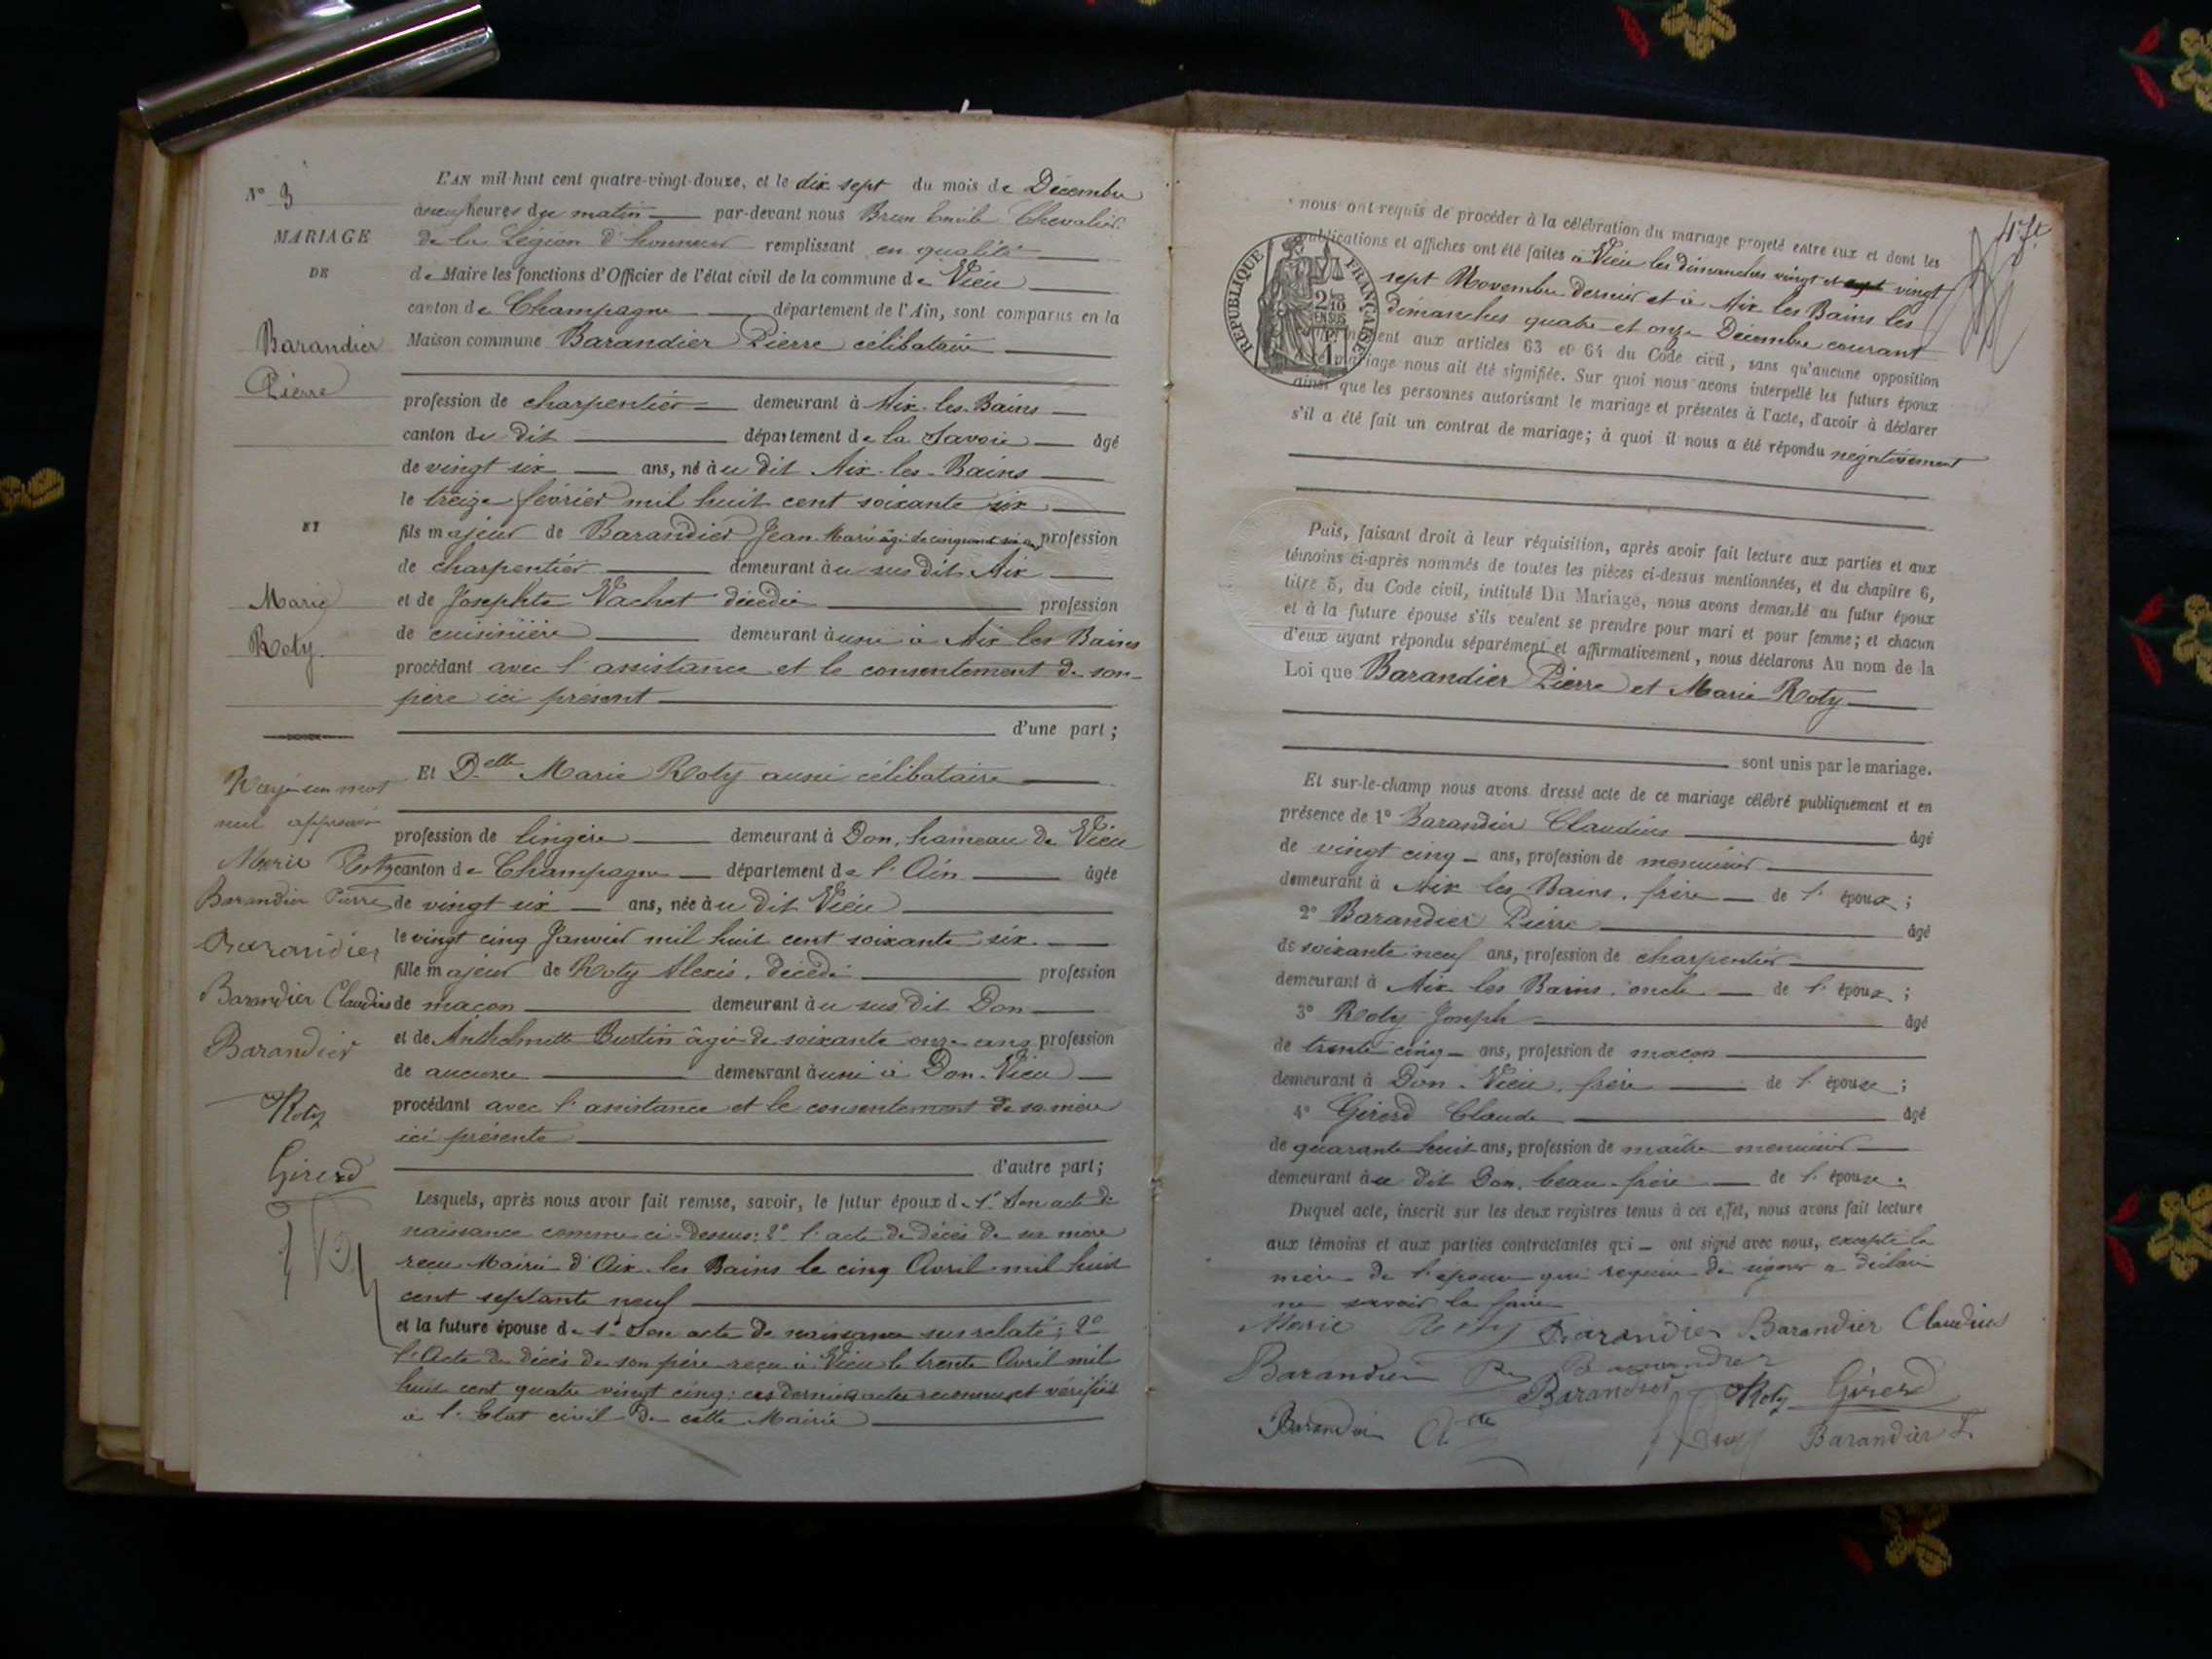 N° 3
MARIAGE
DE
Barandier
Pierre
ET
Marie
Roty.
Rayé un mot
nul approuvé
Marie Roty
Barandier Pierre
Barandier
Barandier Claudius
Barandier
Roty
Girerd
L'AN mil-huit cent quatre-vingt-douze, et le dix sept du mois de Décembre
à neuf heures du matin par-devant nous Brun Emile Chevalier
de la Légion d'honneur remplissant en qualité
de Maire les fonctions d'Officier de l'état civil de la commune de Vieu
canton de Champagne département de l'Ain, sont comparus en la
Maison commune Barandier Pierre célibataire
profession de charpentier demeurant à Aix-les-Bains
canton du dit département de la Savoie âgé
de vingt six ans, né au dit Aix-les-Bains
le treize février mil huit cent soixante six
fils majeur de Barandier Jean-Marie âgé de cinquante six ans profession
de charpentier demeurant au sus dit Aix
et de Josephte Vachet décédée profession
de cuisinière demeurant aussi à Aix les Bains
procédant avec l'assistance et le consentement de son
père ici présent
d'une part;
Et Delle Marie Roty aussi célibataire
profession de lingère demeurant à Don, hameau de Vieu
canton de Champagne département de l'Ain âgée
de vingt six ans, née au dit Vieu
le vingt cinq Janvier mil huit cent soixante six.
fille majeur de Roty Alexis, décédé profession
de maçon demeurant au sus dit Don
et de Anthelmette Burtin âgée de soixante onze ans profession
de aucune demeurant aussi à Don-Vieu
procédant avec l'assistance et le consentement de sa mère
ici présente
d'autre part;
Lesquels, après nous avoir fait remise, savoir, le futur époux de 1° Son acte de
naissance comme ci-dessus; 2° l'acte de décès de sa mère
reçu Mairie d'Aix-les Bains le cinq Avril mil huit
cent septante neuf
et la future épouse de 1° Son acte de naissance susrelaté; 2°
l'Acte de décès de son père reçu à Vieu le trente Avril mil
huit cent quatre vingt cinq; ces derniers actes reconnus et vérifiés
à l'Etat civil de cette Mairie
nous ont requis de procéder à la célébration du mariage projeté entre eux et dont les
publications et affiches ont été faites à Vieu les dimanches vingt et vingt
sept Novembre dernier et à Aix les Bains les
dimanches quatre et onze Décembre courant
RÉPUBLIQUE FRANÇAISE
aux articles 63 et 64 du Code civil, sans qu'aucune opposition
mariage nous ait été signifiée. Sur quoi nous avons interpellé les futurs époux
ainsi que les personnes autorisant le mariage et présentes à l'acte, d'avoir à déclarer
s'il a été fait un contrat de mariage; à quoi il nous a été répondu négativement
Puis, faisant droit à leur réquisition, après avoir fait lecture aux parties et aux
témoins ci-après nommés de toutes les pièces ci-dessus mentionnées, et du chapitre 6,
titre 5, du Code civil, intitulé Du Mariage, nous avons demandé au futur époux
et à la future épouse s'ils veulent se prendre pour mari et pour femme; et chacun
d'eux ayant répondu séparément et affirmativement, nous déclarons Au nom de la
Loi que Barandier Pierre et Marie Roty
sont unis par le mariage.
Et sur-le-champ nous avons dressé acte de ce mariage célébré publiquement et en
présence de 1° Barandier Claudius âgé
de vingt cinq ans, profession de menuisier
demeurant à Aix les Bains, frère de l'époux;
2° Barandier Pierre âgé
de soixante neuf ans, profession de charpentier
demeurant à Aix les Bains, oncle de l'époux;
3° Roty Joseph âgé
de trente cinq ans, profession de maçon
demeurant à Don-Vieu, frère de l'épouse;
4° Girerd Claude âgé
de quarante huit ans, profession de maître menuisier
demeurant au dit Don, beau-frère de l'épouse.
Duquel acte, inscrit sur les deux registres tenus à cet effet, nous avons fait lecture
aux témoins et aux parties contractantes qui ont signé avec nous, excepté la
mère de l'épouse qui requise de signer a déclaré
ne savoir le faire
Marie Roty Barandier Barandier Claudius
Barandier Barandier
Barandier Roty Girerd
Barandier Barandier F.